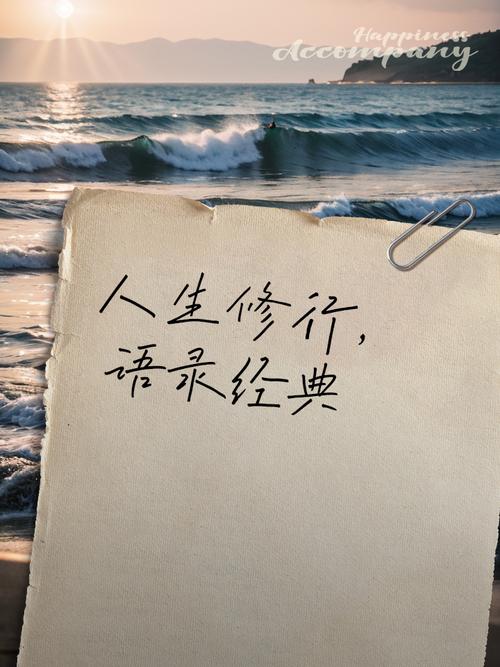 Happiness
Accompany
人生修行,
语录经典